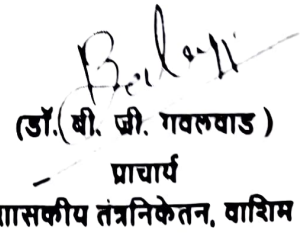 (डॉ. बी. जी. गवलवाड )
प्राचार्य
शासकीय तंत्रनिकेतन, वाशिम